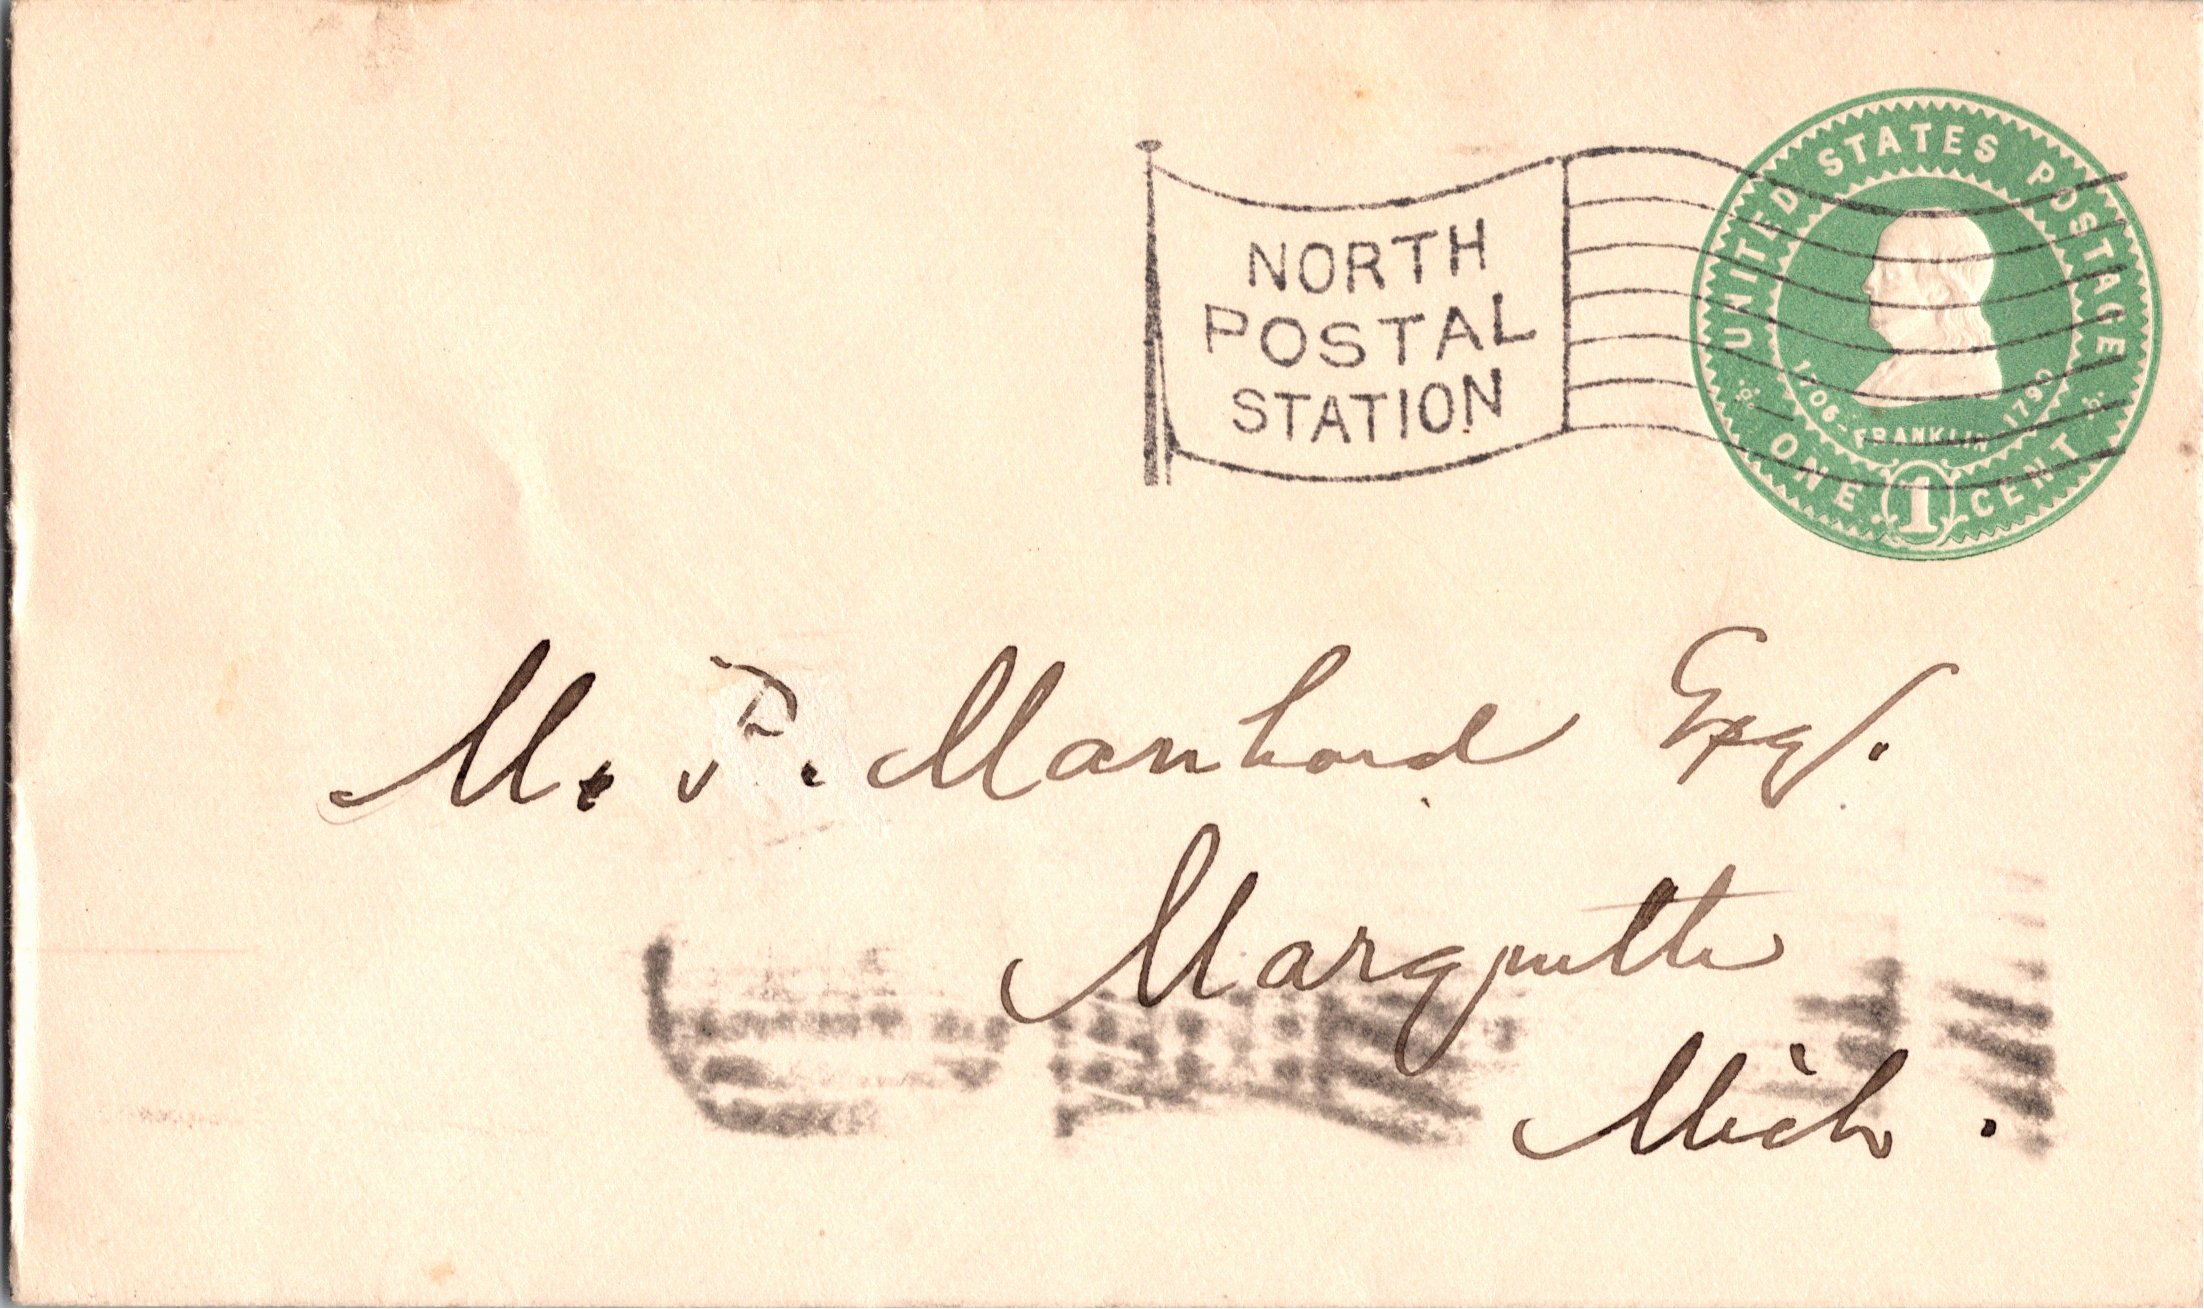 NORTH
POSTAL
STATION
UNITED STATES POSTAGE
1706-FRANKLIN-1790
ONE 1 CENT
M. P. Manhard Esq.
Marquette
Mich.